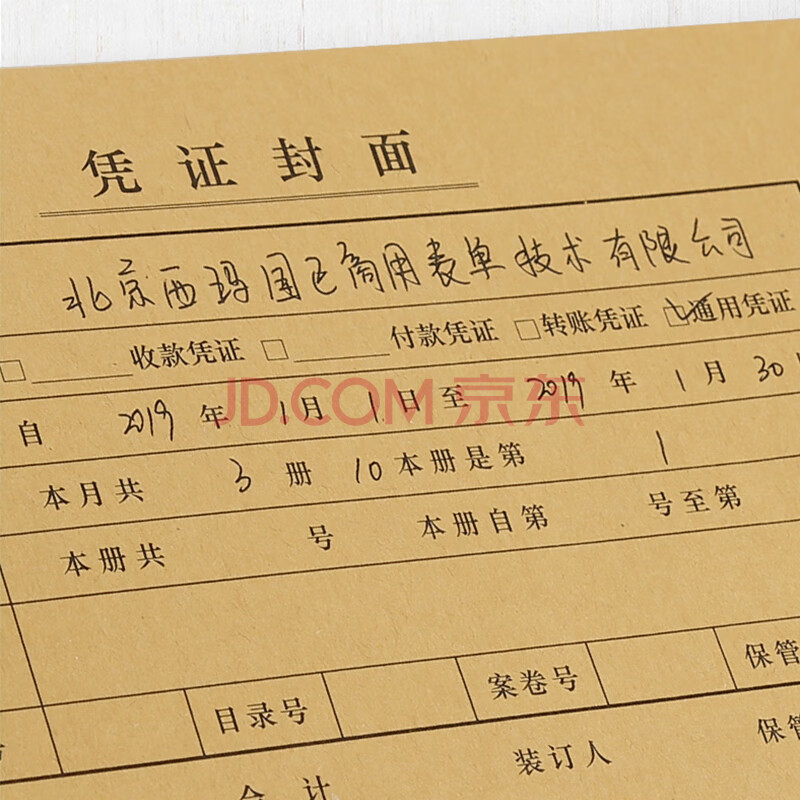 凭证封面
北京西玛国已商用表单技术有限公司
□______收款凭证 □______付款凭证 □转账凭证 ☑通用凭证
自 2019 年 1 月 1 日 至 2019 年 1 月 30
JD.COM 京东
本月共 3 册 10 本册是第 1
本册共 号 本册自第 号至第
目录号 案卷号 保管
合计 装订人 保管